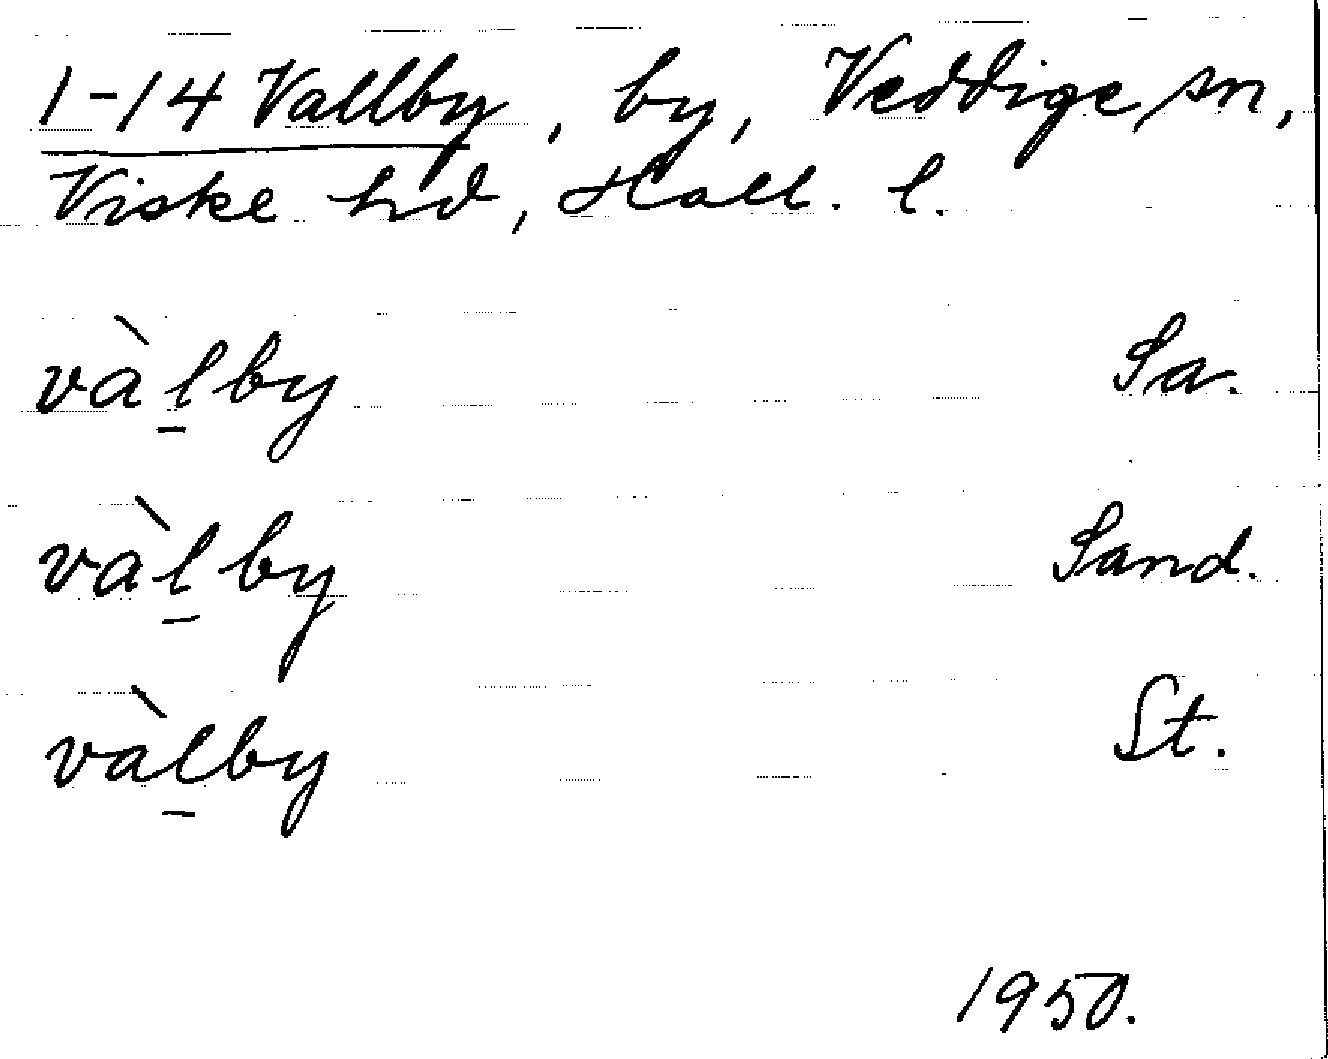 1-14 Vallby, by, Veddige sn,
Viske hd, Hall. l.
vàl̠by Sa.
vàl̠by Sand.
vàl̠by St.
1950.